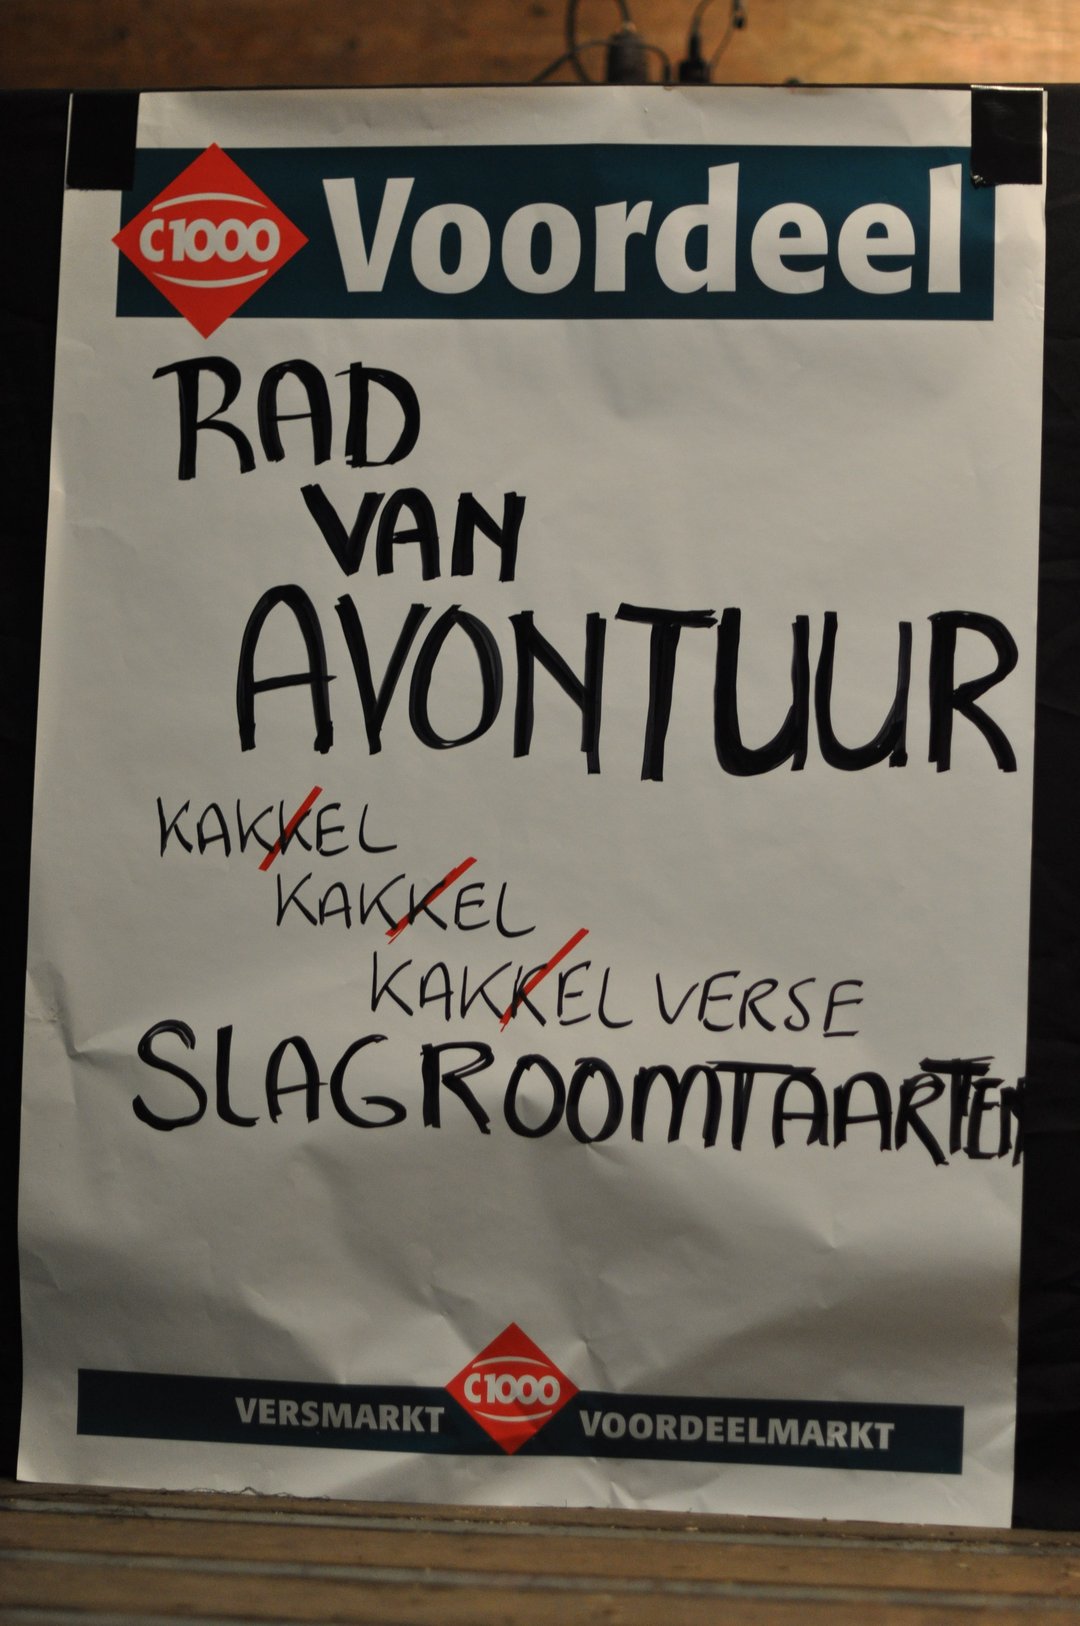 C1000 Voordeel
RAD
VAN
AVONTUUR
KAKKEL
KAKKEL
KAKKEL VERSE
SLAGROOMTAARTEN
VERSMARKT C1000 VOORDEELMARKT